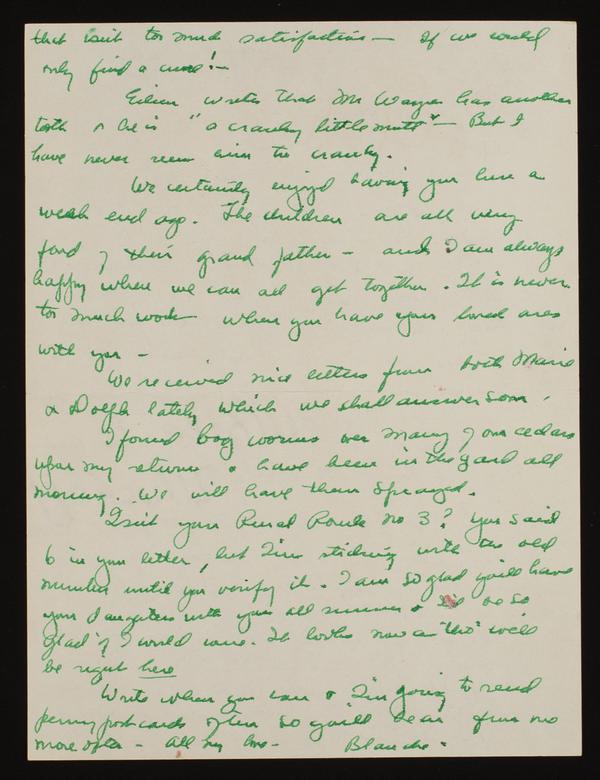 that isn't too much satisfaction — If we could
only find a cure! —
Eileen writes that Mr Wayne has another
tooth & he is "a cranky little mutt" — But I
have never seen him too cranky.
We certainly enjoyed having you here a
week end ago. The children are all very
fond of their grand father — and I am always
happy when we can all get together. It is never
too much work when you have your loved ones
with you —
We received nice letters from both Marie
& Dolph lately which we shall answer soon.
I found bag worms over many of our cedars
upon my return & have been in the yard all
morning. We will have them sprayed.
Isn't your Rural Route no 3? You said
6 in your letter, but I'm sticking with the old
number until you verify it. I am so glad you'll have
your daughters with you all summer & I'd be so
glad if I could come. It looks now as "tho" we'll
be right here
Write when you can & I'm going to send
penny postcards often so you'll hear from me
more often — All my love — Blanche.